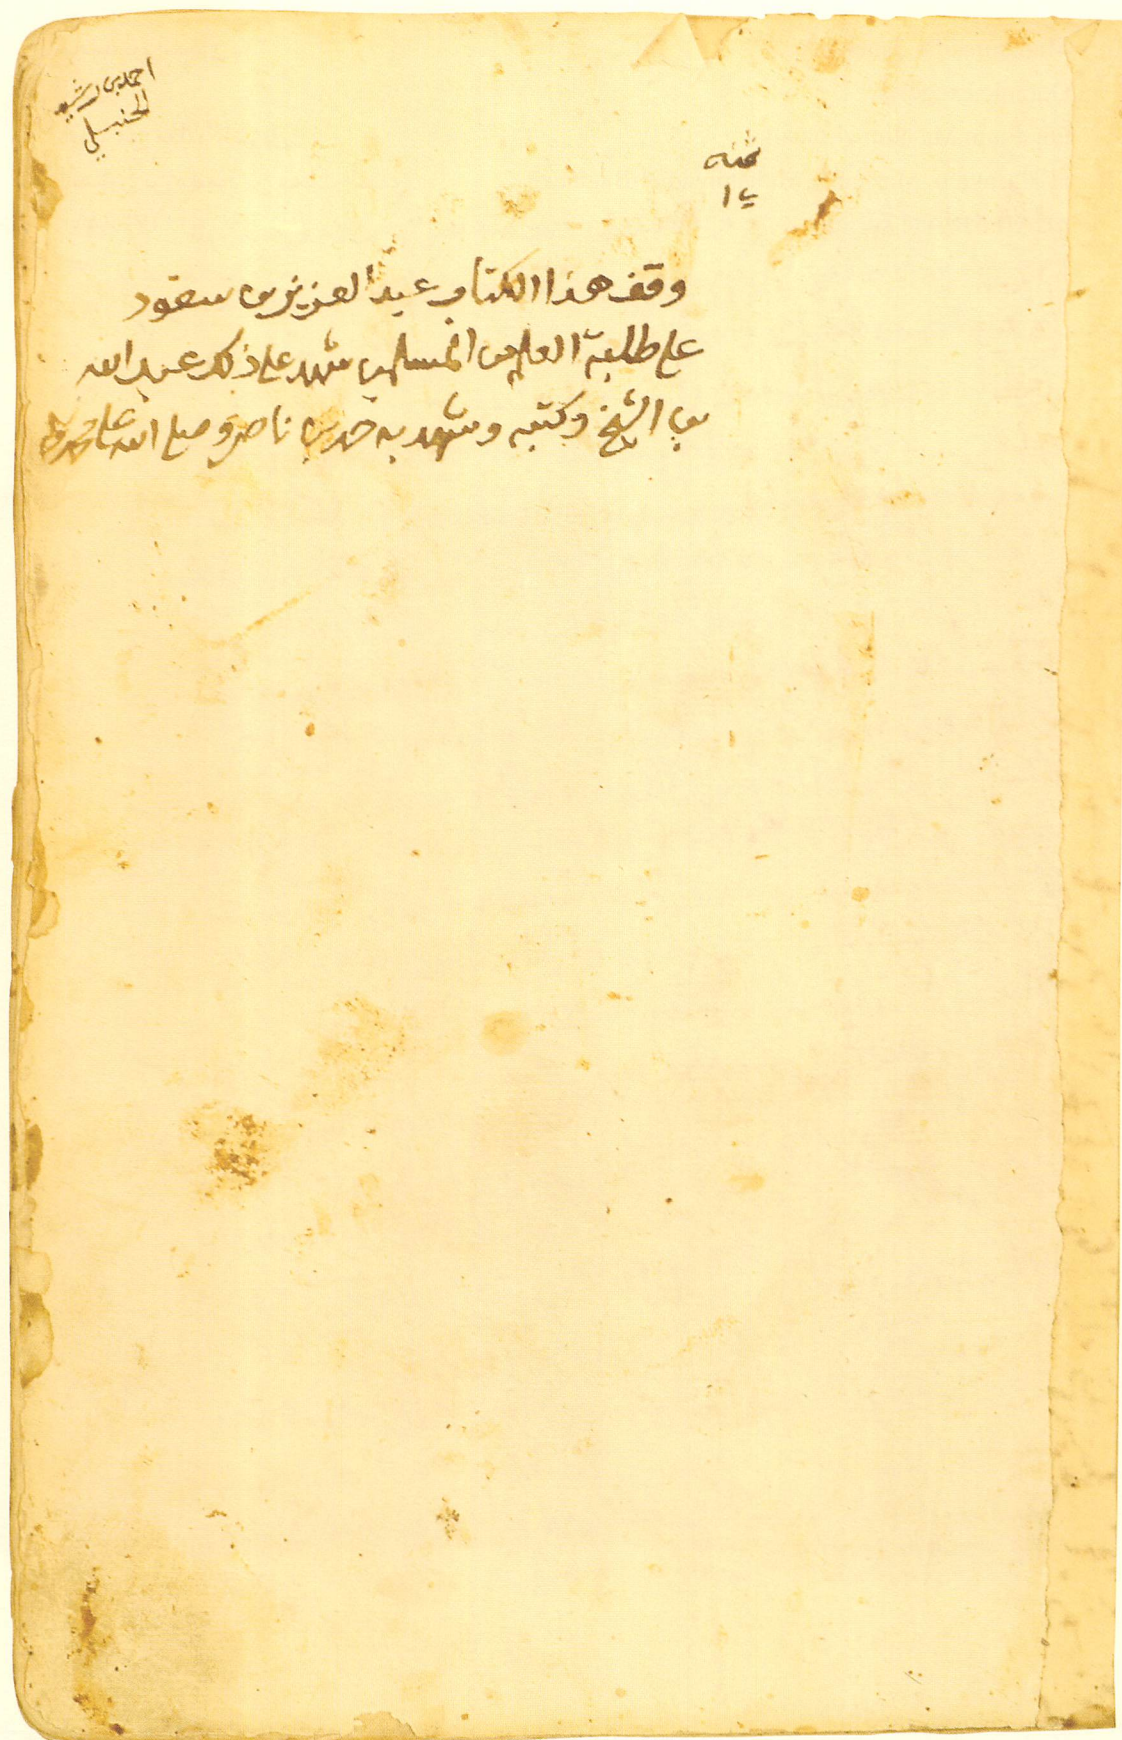 احمد بن رشيد
الحنبلي
ثمنه
وقف هذا الكتاب عبد العزيز بن سعود
على طلبة العلم من المسلمين شهد على ذلك عبد الله
بن الشيخ وكتبه وشهد به حمد بن ناصر وصلى الله على محمد